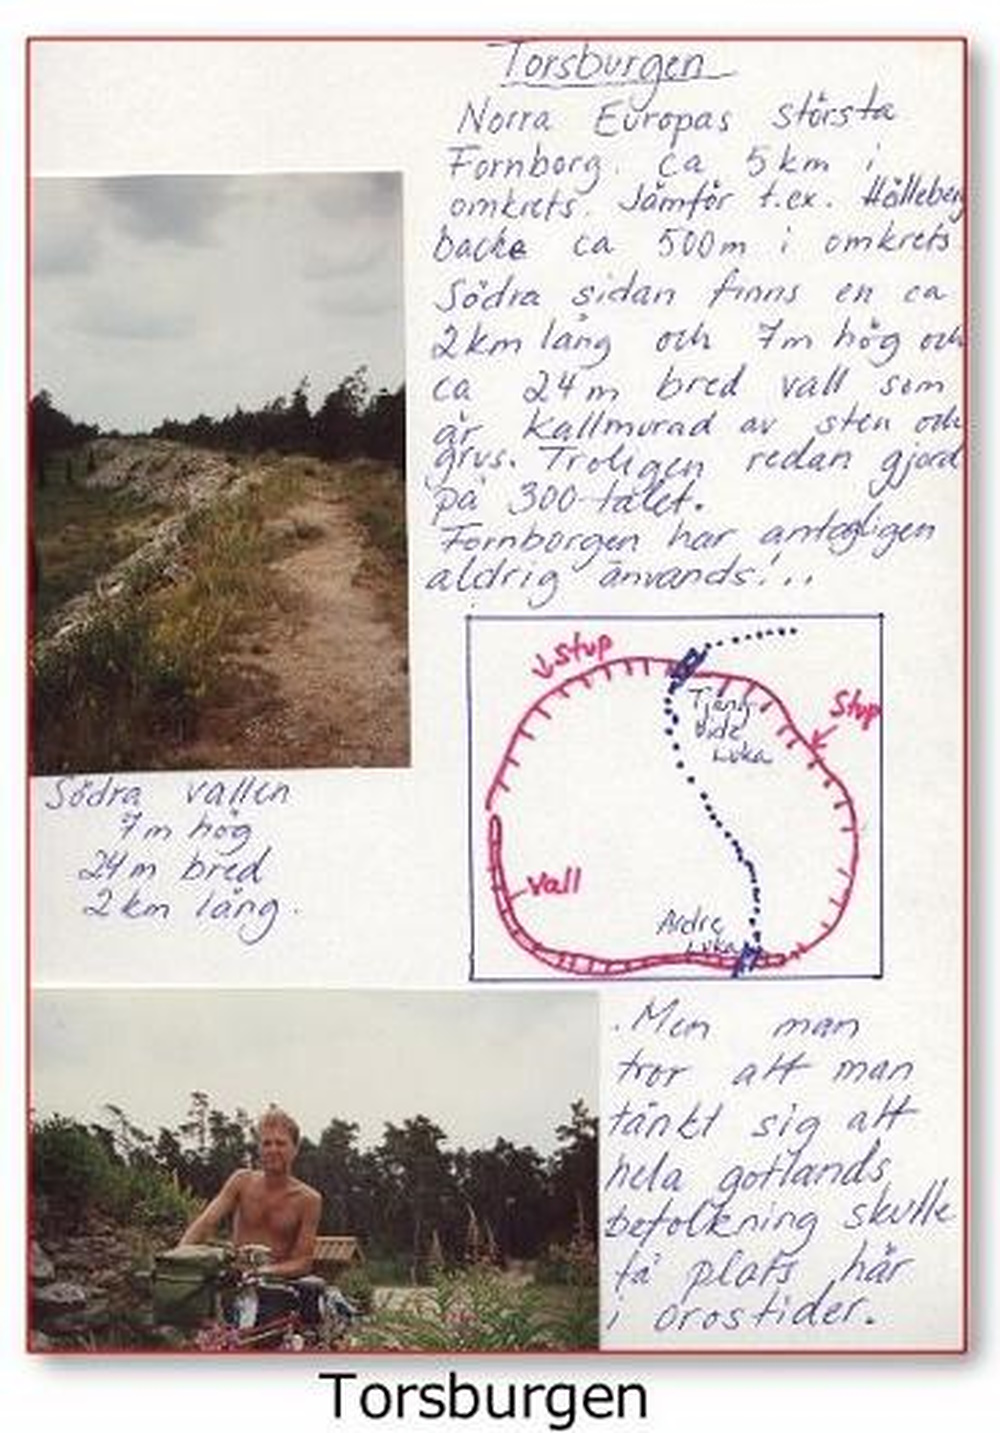 Torsburgen
Norra Europas största
Fornborg. ca 5 km i
omkrets. Jämför t.ex. Hälleberg
backe ca 500m i omkrets
Södra sidan finns en ca
2km lång och 7m hög och
ca 24m bred vall som
är kallmurad av sten och
grus. Troligen redan gjord
på 300-talet.
Fornborgen har antagligen
aldrig används!..
Stup
Stup
Tjäng
vide
Luka
Vall
Ardre
Luka
Södra vallen
7m hög
24m bred
2km lång.
.Men man
tror att man
tänkt sig att
hela gotlands
befolkning skulle
få plats här
i orostider.
Torsburgen